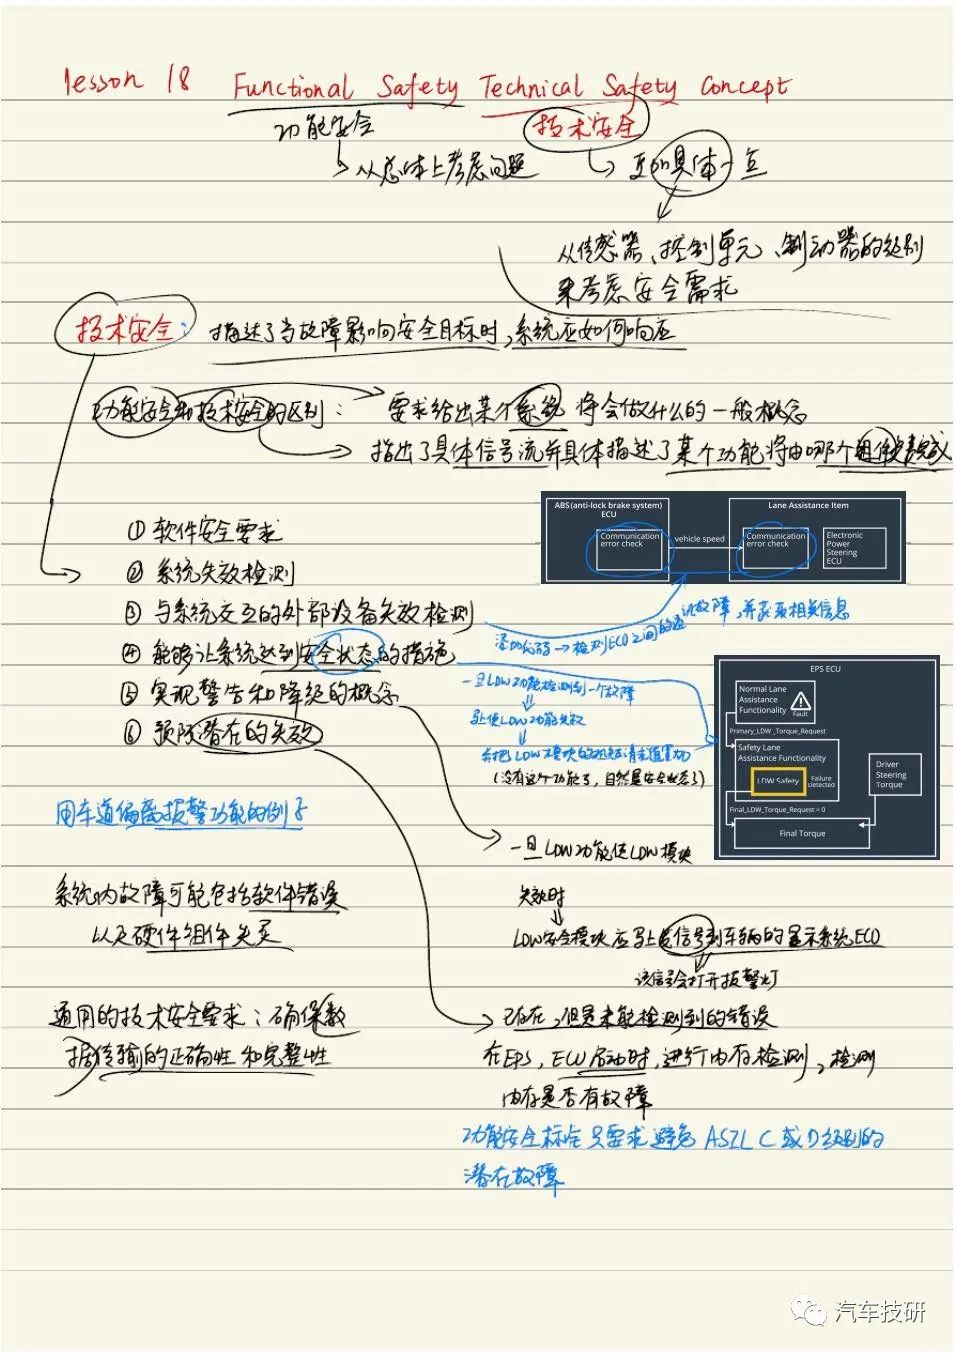 lesson 18 Functional Safety Technical Safety Concept
功能安全 技术安全
从总体上考虑问题 更加具体一点
从传感器、控制单元、制动器的级别
来考虑安全需求
技术安全: 描述了当故障影响安全目标时,系统应如何响应
功能安全和技术安全的区别: 要求给出某个系统将会做什么的一般概念
指出了具体信号流并具体描述了某个功能将由哪个组件完成
ABS(anti-lock brake system)
ECU
Communication
error check
vehicle speed
Lane Assistance Item
Communication
error check
Electronic
Power
Steering
ECU
① 软件安全要求
② 系统失效检测
③ 与系统交互的外部设备失效检测
添加代码→检测ECU之间的通讯故障,并获取相关信息
④ 能够让系统达到安全状态的措施
一旦LDW功能检测到一个故障
马上使LDW功能失效
会把LDW模块的扭矩请求置为0
(没有这个功能了,自然是安全状态了)
⑤ 实现警告和降级的概念
⑥ 预防潜在的失效
EPS ECU
Normal Lane
Assistance
Functionality
Fault
Primary_LDW_Torque_Request
Safety Lane
Assistance Functionality
LDW Safety
Failure
Detected
Driver
Steering
Torque
Final_LDW_Torque_Request = 0
Final Torque
用车道偏离报警功能的例子
一旦LDW功能使LDW模块
失效时
LDW安全模块应马上发信号到车辆的显示系统ECU
该信号会打开报警灯
系统内故障可能包括软件错误
以及硬件组件失灵
通用的技术安全要求:确保数
据传输的正确性和完整性
已存在,但是未能检测到的错误
在EPS,ECU启动时,进行内存检测,检测
内存是否有故障
功能安全标准只要求避免ASIL C或D级别的
潜在故障
汽车技研